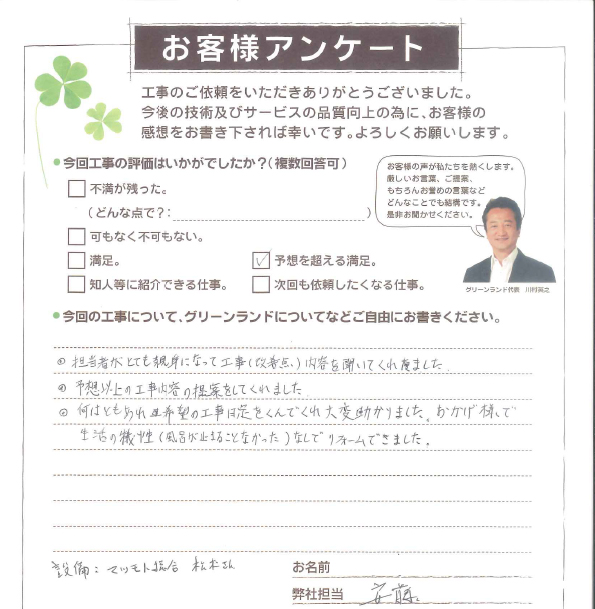 お客様アンケート
工事のご依頼をいただきありがとうございました。
今後の技術及びサービスの品質向上の為に、お客様の
感想をお書き下されば幸いです。よろしくお願いします。
今回工事の評価はいかがでしたか?(複数回答可)
不満が残った。
(どんな点で?: )
可もなく不可もない。
満足。
予想を超える満足。
知人等に紹介できる仕事。
次回も依頼したくなる仕事。
お客様の声が私たちを熱くします。
厳しいお言葉、ご提案、
もちろんお誉めの言葉など
どんなことでも結構です。
是非お聞かせください。
グリーンランド代表 川村英之
今回の工事について、グリーンランドについてなどご自由にお書きください。
◎ 担当者がとても親身になって工事(改善点)内容を聞いてくれ度ました.
◎ 予想以上の工事内容の提案をしてくれました
◎ 何はともあれ希望の工事日定をくんでくれ大変助かりました。おかげ様で
生活の犠牲(風呂が止まることなかった)なしでリフォームできました.
設備: マツモト総合 松本さん
お名前
弊社担当 安藤